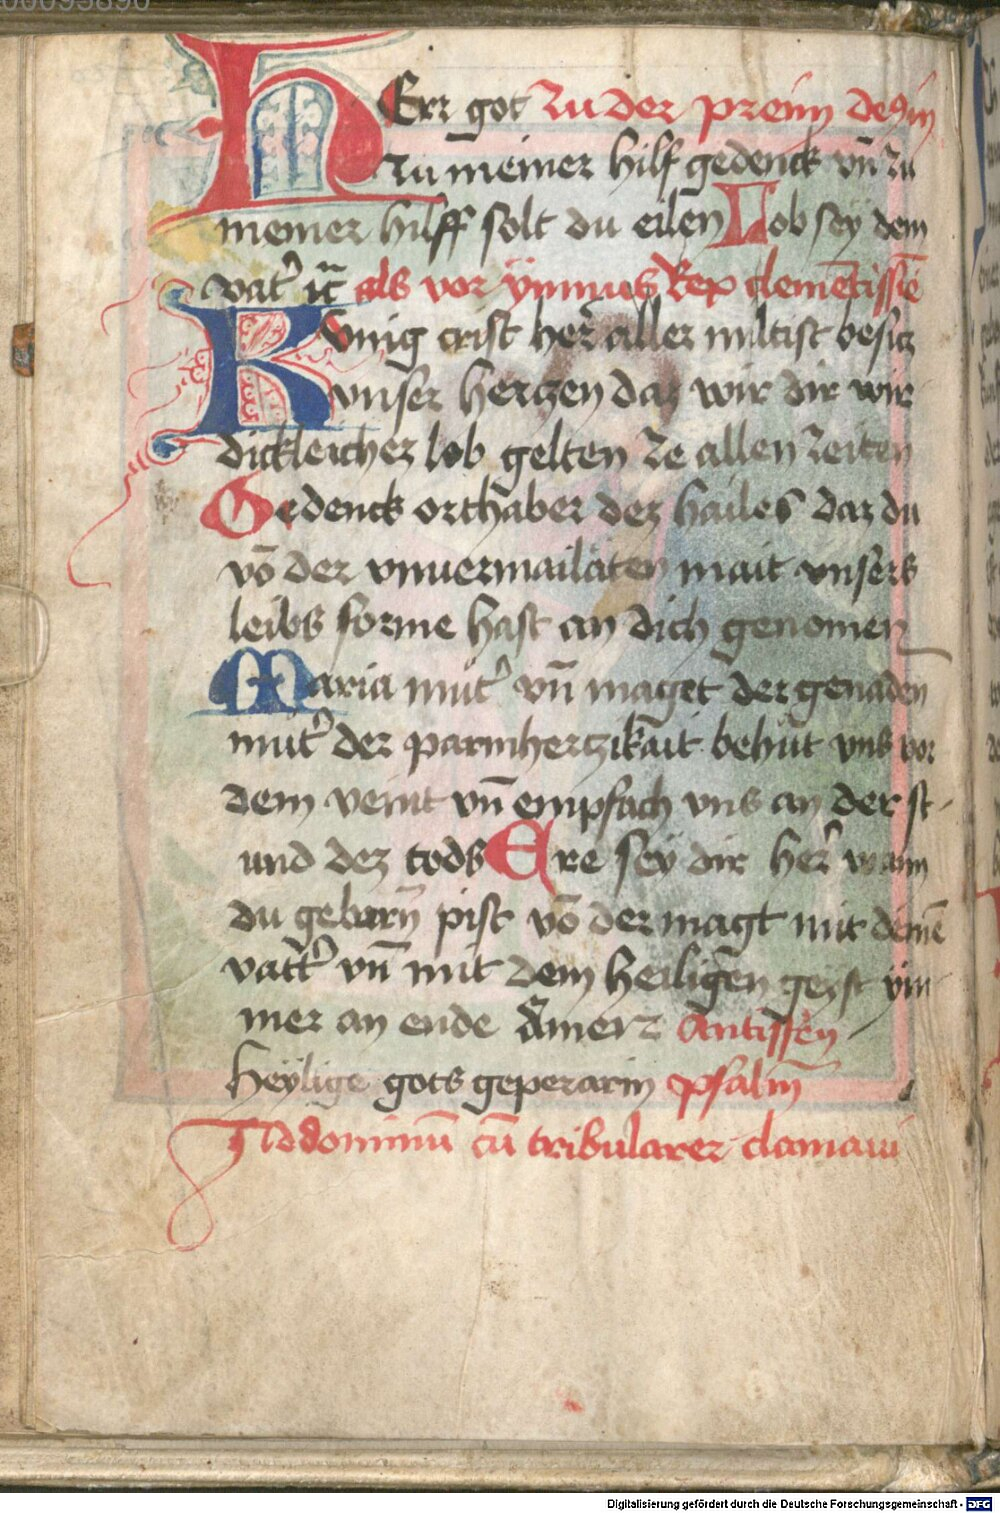 HErr got zu der preim de9in
zu meiner hilf gedenck vn̄ zu
meiner hilff solt du eilen Lob sey dem
vat' ꝛc̃ als vor ÿmnus Rex clemētissīe
Kunig crist her' aller miltist besicz
vnser herczen daz wir dir wir
dickleicher lob gelten ze allen zeiten
Gedenck orthaber dez hailes daz du
vō der vnuermailäten mait vnsers
leibs forme hast an dich genomen
Maria mut' vn̄ maget der genaden
mut' der parmherczikait behüt vns vor
dem veint vn̄ empfach vns an der st-
und dez tods Ere sey dir her' wann
du geborn̄ pist vō der magt mit deinē
vatt' vn̄ mit dem heiligen geyst ÿm
mer an ende Amen
heÿlige gots geperarin psalm̄
Ad dominū cū tribularer clamaui
Digitalisierung gefördert durch die Deutsche Forschungsgemeinschaft - DFG